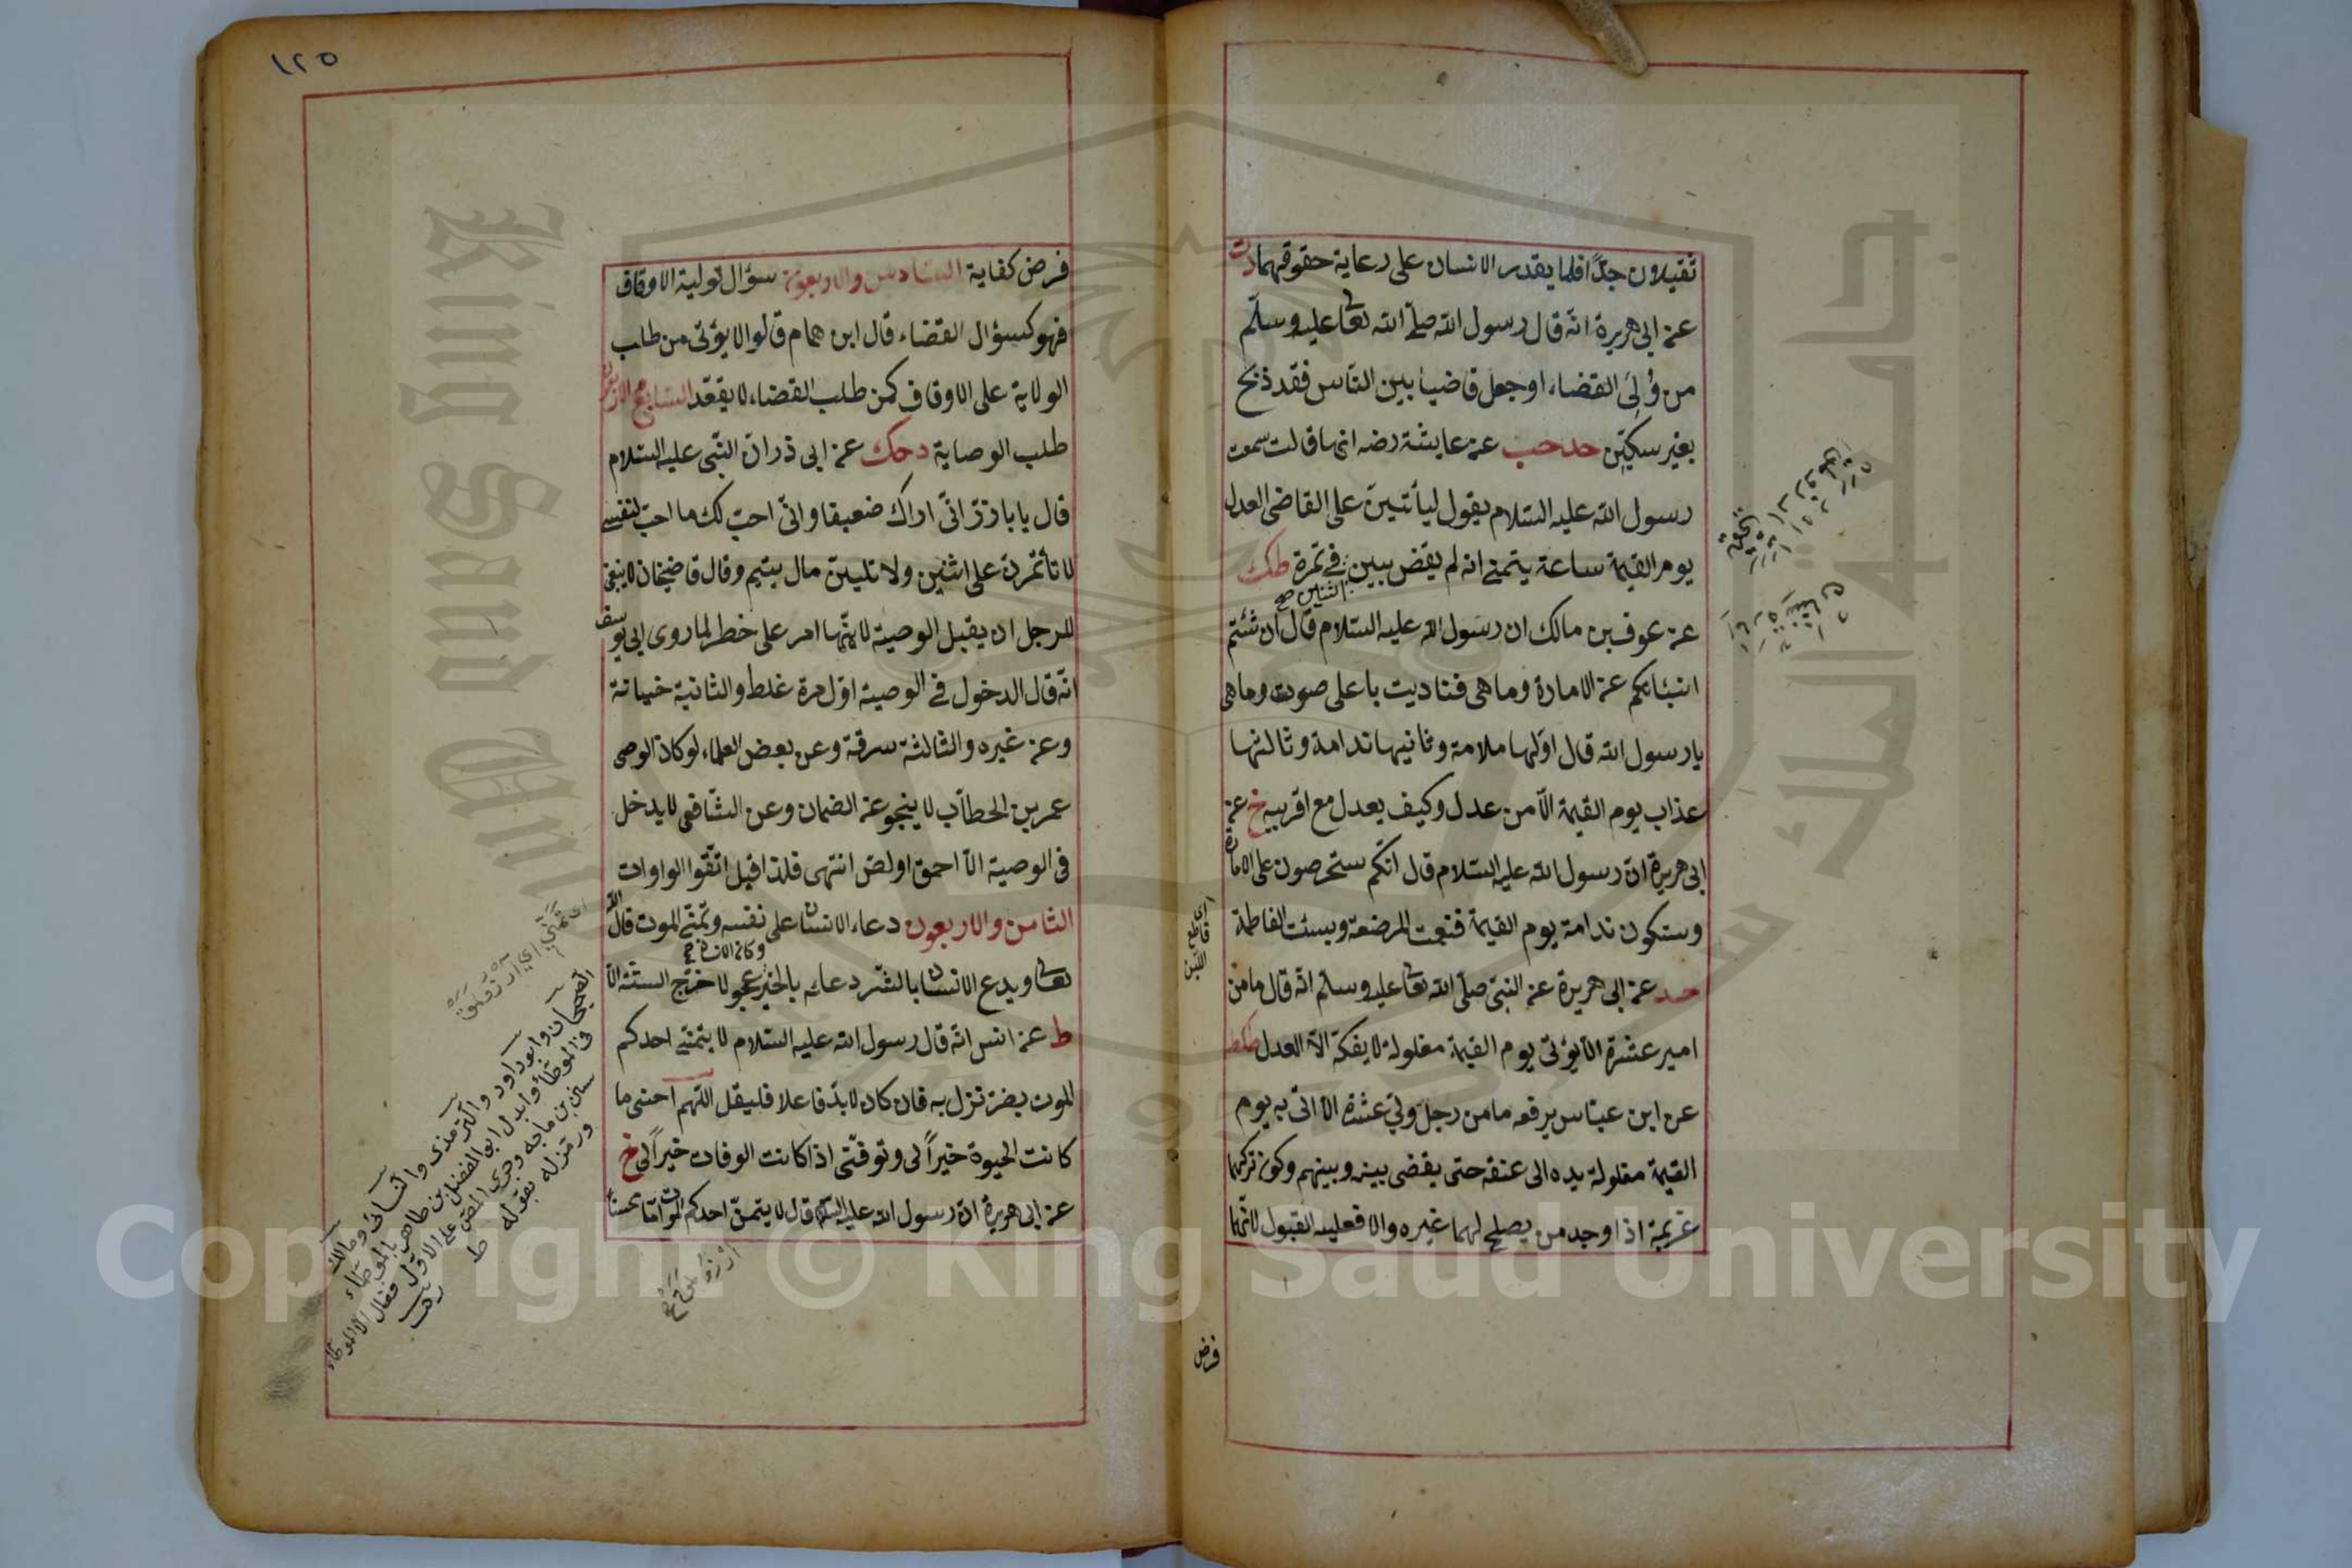 ثقيلان جدّا فلما يقدر الانسان على رعاية حقوقهما دت
عن ابى هريرة انّه قال رسول الله صلّى الله تعا عليه وسلّم
من وُلِىَ القضاء او جعل قاضيا بين النّاس فقد ذبح
بغير سكّين حد حب عن عايشة رضه انها قالت سمعت
رسول الله عليه السّلام يقول ليأتينّ على القاضى العدل
يوم القيمة ساعة يتمنى انه لم يقض بين في تمرة طك
اثنين صح
عن عوف بن مالك ان رسول الله عليه السّلام قال ان شئتم
انبئتكم عن الامارة وما هى فناديت باعلى صوت وما هى
يا رسول الله قال اوّلها ملامة وثانيها ندامة وثالثها
عذاب يوم القيمة الّا من عدل وكيف يعدل مع اقربيه خ عن
ابى هريرة انّ رسول الله عليه السّلام قال انّكم ستحرصون على الامارة
وستكون ندامة يوم القيمة فنعمت المرضعة وبئست الفاطمة
حد عن ابى هريرة عن النبىّ صلّى الله تعا عليه وسلّم انّه قال ما من
امير عشرة الّا يؤتى يوم القيمة مغلولة لا يفكّه الّا العدل طكط
عن ابن عبّاس يرفعه ما من رجل ولى عشرة الّا اتى به يوم
القيمة مغلولة يده الى عنقه حتى يقضى بينه وبينهم وكون تركهما
عزيمة اذا وجد من يصلح لهما غيره والا فعليه القبول لانّهما
اى
قاطع
اللبن
فرض
١٢٥
فرض كفاية السّادس والاربعون سؤال تولية الاوقاف
فهو كسؤال القضاء قال ابن همام قالوا لا يؤتى من طلب
الولاية على الاوقاف كمن طلب القضاء لا يقعد السّابع الاربعون
طلب الوصاية د حك عن ابى ذر انّ النّبى عليه السّلام
قال يا باذرّ انّى اراك ضعيفا وانّى احبّ لك ما احبّ لنفسى
لا تأمّرنّ على اثنين ولا تلينّ مال يتيم وقال قاضيخان لا ينبغى
للرجل ان يقبل الوصية لانّها امر على خطر لما روى ابى يوسف
انّه قال الدخول في الوصية اوّل مرة غلط والثانية خيانة
وعن غيره والثالثة سرقة وعن بعض العلماء لو كان الوصى
عمر بن الخطاب لا ينجو عن الضمان وعن الشّافعى لا يدخل
فى الوصية الّا احمق او لصّ انتهى فلذا قيل اتّقوا الواوات
الثامن والاربعون دعاء الانسان على نفسه وتمنّى الموت قال الله
وكان الانسان
تعا ويدع الانسان بالشّر دعائه بالخير عجولا خرّج الستّة الّا
ط عن انس انّه قال رسول الله عليه السّلام لا يتمنّى احدكم
الموت بضرّ نزل به فان كان لا بدّ فاعلا فليقل اللّهم احينى ما
كانت الحيوة خيراً لى وتوفّنى اذا كانت الوفات خيراً لى خ
عن ابى هريرة انّ رسول الله عليه السّلام قال لا يتمنّ احدكم الموت امّا محسناً
الصحيحان وابو داود والترمذى والنسائى ومالك
فى الموطّاء وابدل ابو الفضل بن طاهر بالموطّاء
سنن بن ماجه وجرى المصّ على الاوّل فقال الّا الموطّاء
ورمز له بقوله ط